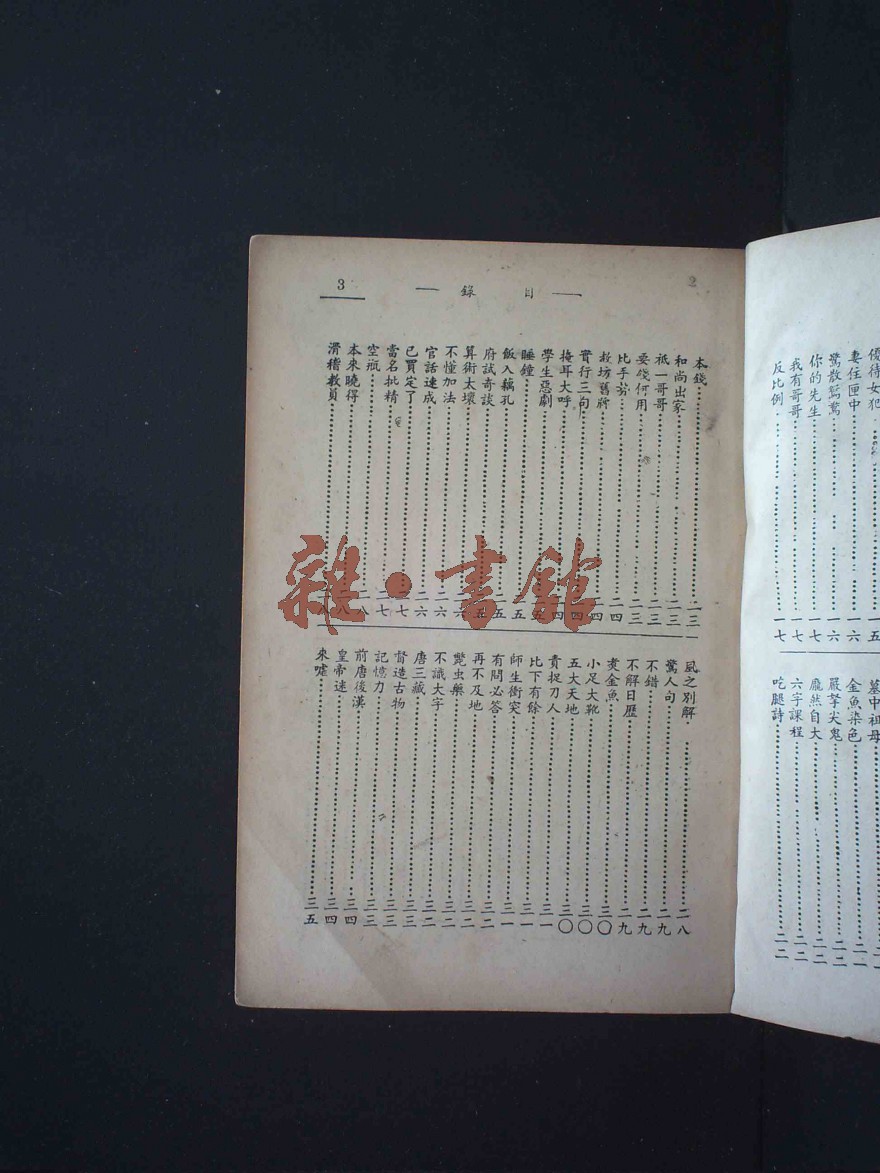 2
優待女犯
妻住匣中 一五
驚散鴛鴦 一六
你的先生 一七
我有哥哥 一七
反比例 一七
墓中祖母
金魚染色 二一
嚴拏犬鬼 二二
龐然自大 二二
六字課程 二二
吃腿詩 二二
3
目錄
本錢 二三
和尚出家 二三
祇一哥哥 二三
要錢何用 二三
比手勢 二四
教坊舊牌 二四
實行三句 二四
掩耳大呼 二四
學生惡劇
睡鐘
飯入藕孔
府試奇談
算術太壞
不懂加法 二六
官話速成 二六
已買定了 二七
當名批精 二七
空瓶
本來曉得
滑稽教員
風之別解 二八
驚人句 二九
不錯 二九
不解日歷 二九
賣金魚 三〇
小足大靴 三〇
五大天地 三〇
責捉刀人 三一
比下有餘 三一
師生衝突 三一
有問必答 三二
再不及地 三二
斃虫藥 三二
不識大字 三二
唐三藏 三三
督造古物 三三
記憶力 三三
前唐後漢 三四
皇帝迷 三四
來噓 三五
雜·書館